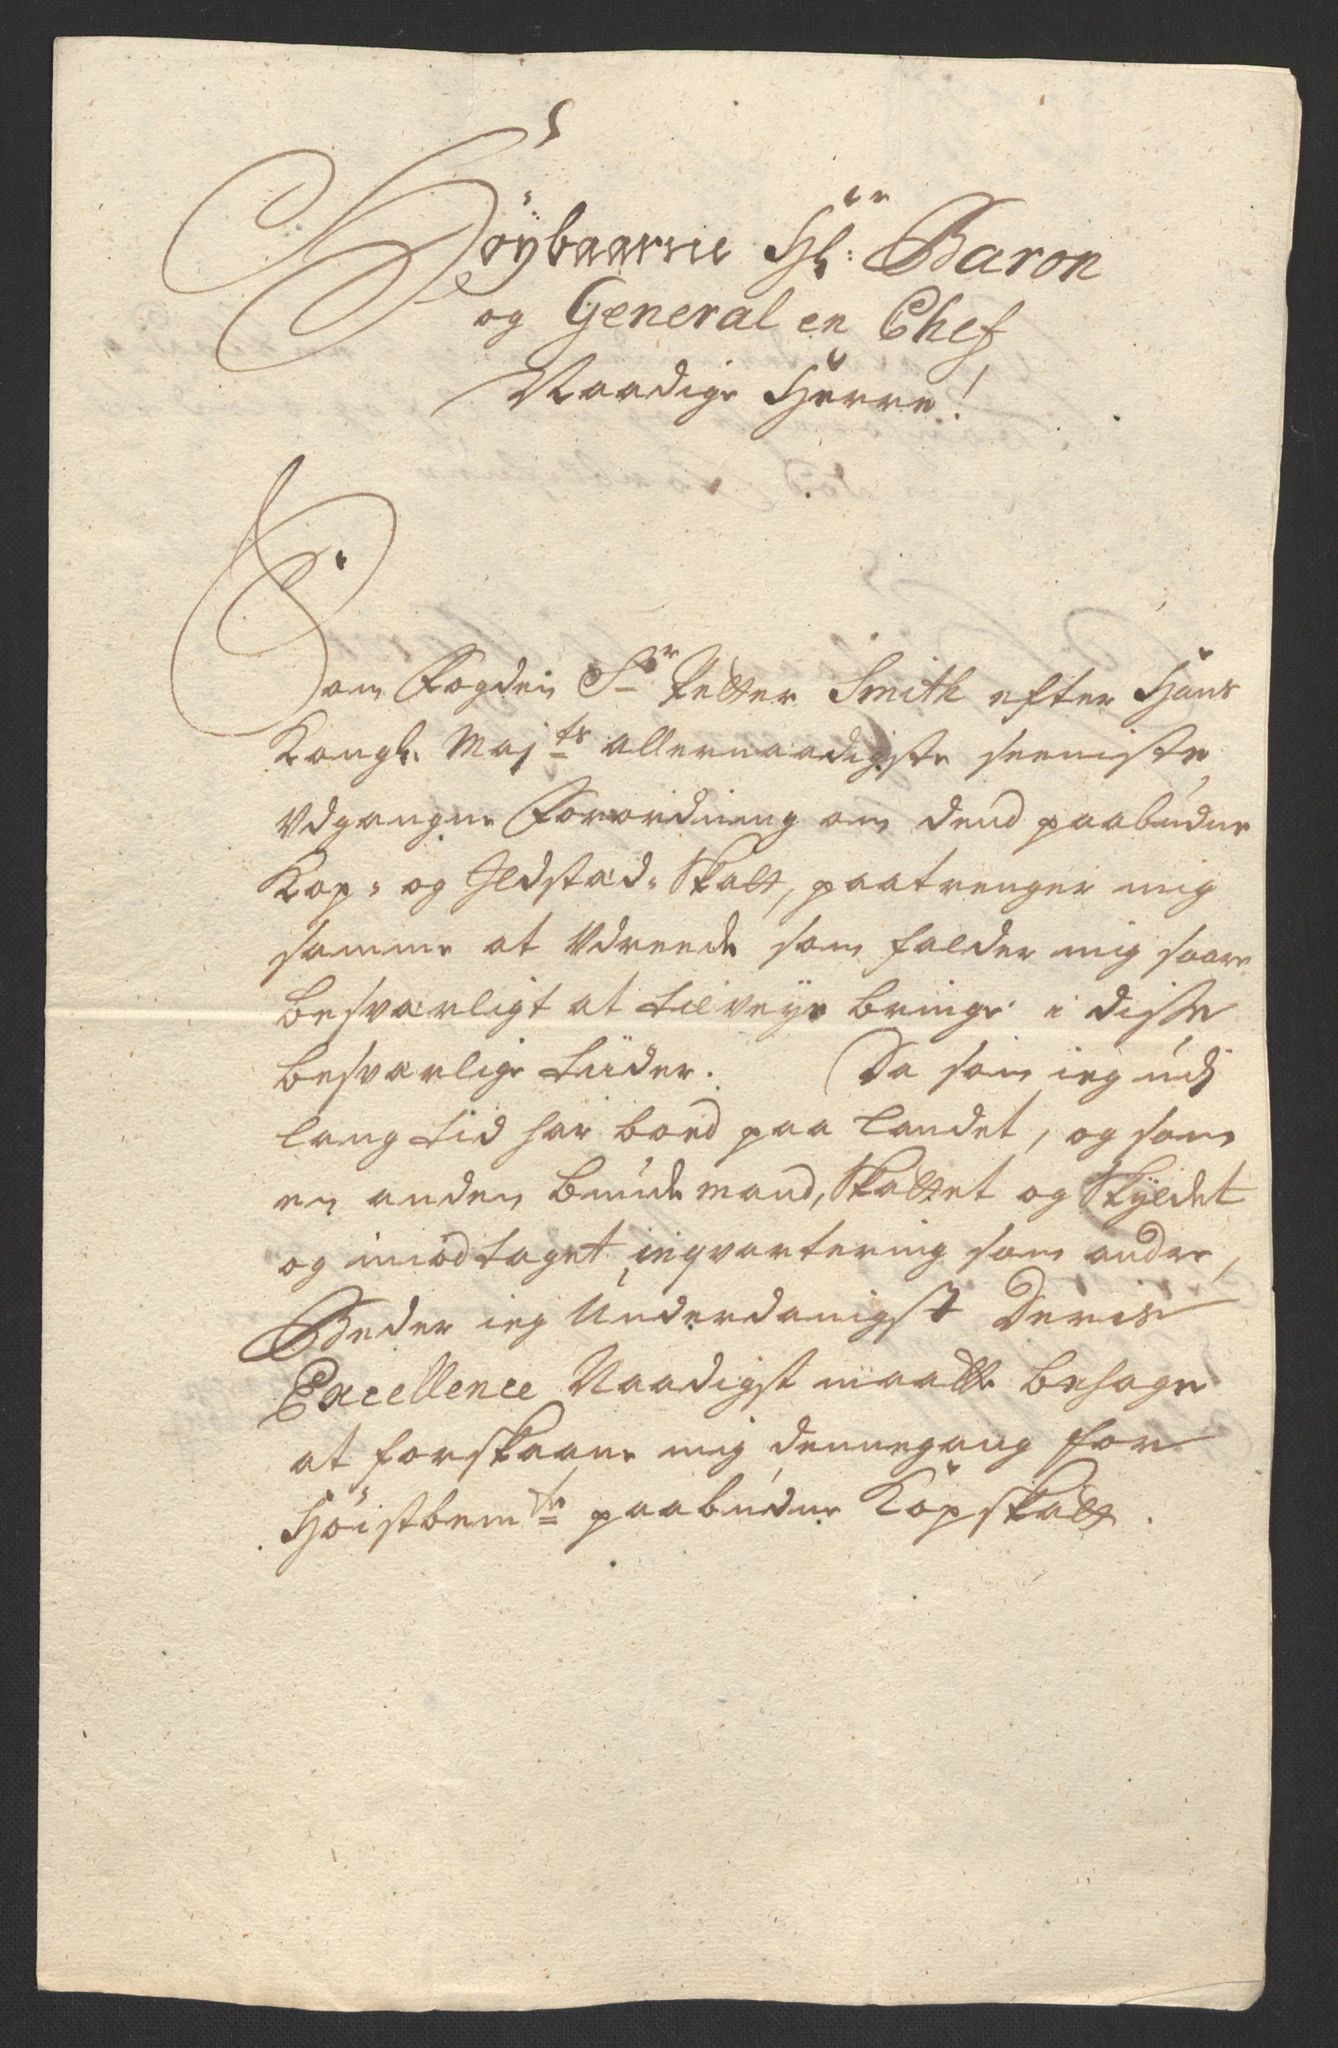 Höybaarne Hl: Baron
og General en Chef
Naadige Herre!
Som Fogden Sr Petter Smith efter Hans
Kongl. Majts allernaadigste seeniste
Vdgangne Forordning om dend paabudne
Kop- og Ildstæd-Skatt, paatrenger mig
samme at Vdreede som falder mig saare
besværligt at tilveye bringe i disse
besværlige tiider. Da som ieg udj
lang tid har boed paa Landet, og som
en anden bunde mand, Skattet og Skyldet
og imodtaget inqvartering som andre,
Beder ieg Underdanigst Deris
Excellence Naadigst maatte behage
at forskaane mig dennegang for
Höistbemte paabudne Kopskatt.